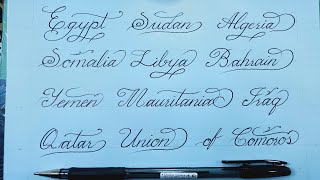 Egypt Sudan Algeria
Somalia Libya Bahrain
Yemen Mauritania Iraq
Qatar Union of Comoros